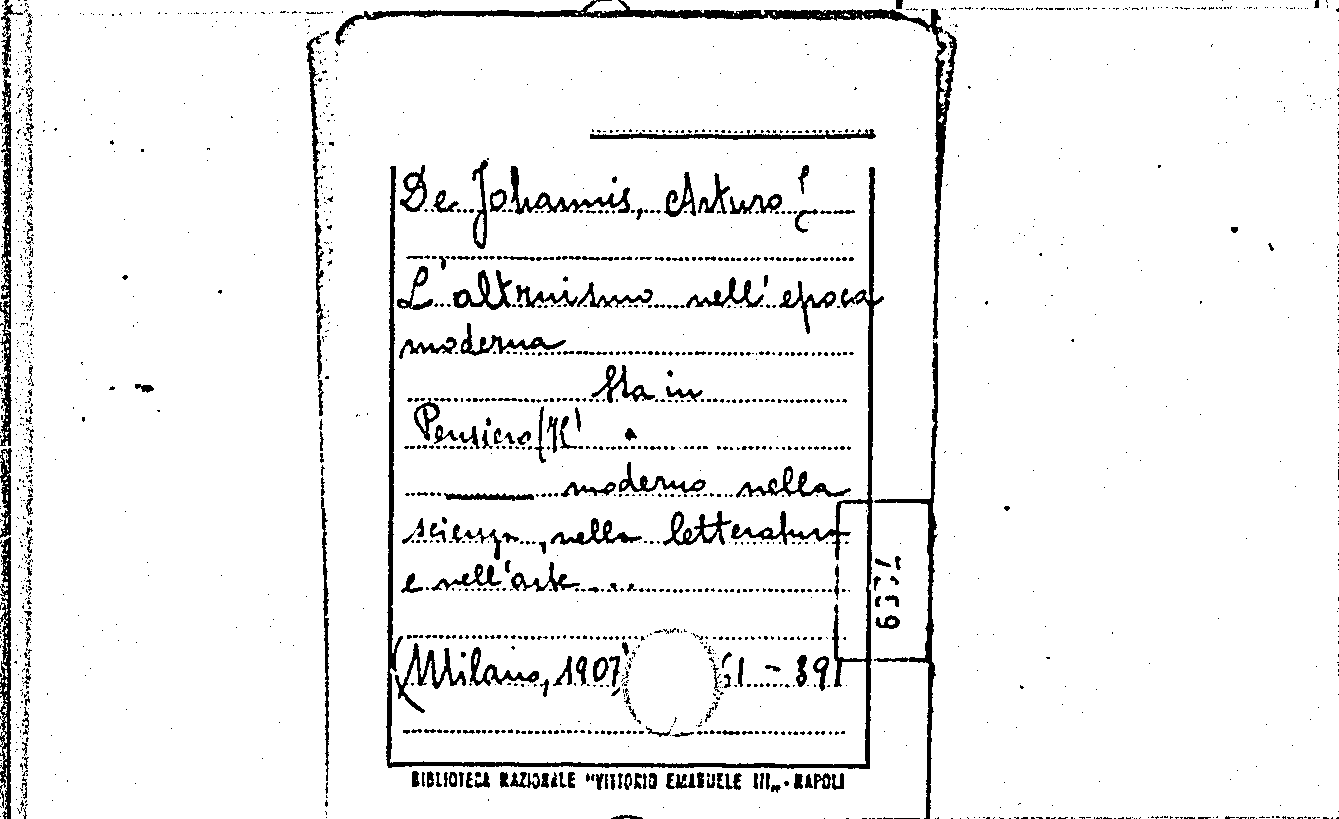 De Johannis, Arturo
L'altruismo nell'epoca
moderna
Sta in
Pensiero
moderno nella
scienza, nella letteratura
e nell'arte ...
(Milano, 1907)
BIBLIOTECA NAZIONALE "VITTORIO EMANUELE III„ - NAPOLI